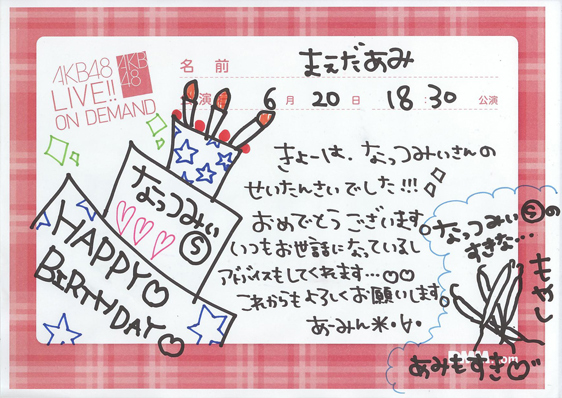 AKB48
LIVE!!
ON DEMAND
AKB
48
名前
まえだあみ
演
6月20日 18:30公演
きょーは、なっつみぃさんの
せいたんさいでした!!!
おめでとうございます。
いつもお世話になっているし
アドバイスもしてくれます…♡♡
これからもよろしくお願いします。
あーみん米・
なっつみぃⓈ
♡♡♡
HAPPY♡
BiRTHDAY♡
なっつみぃⓈの
すきな…
もやし
あみもすき♡
.com